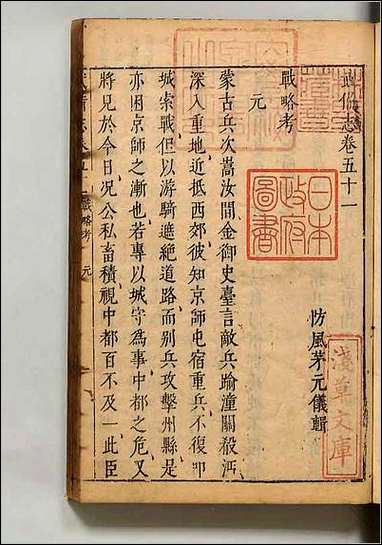 武備志卷五十一
防風茅元儀輯
戰略考
元
蒙古兵次嵩汝間金御史臺言敵兵踰潼關殽沔
深入重地近抵西郊彼知京師屯宿重兵不復叩
城索戰但以游騎遮絶道路而别兵攻擊州縣是
亦困京師之漸也若專以城守為事中都之危又
將見於今日况公私畜積視中都百不及一此臣
戰略考
元
日本
政府
圖書
淺草文庫